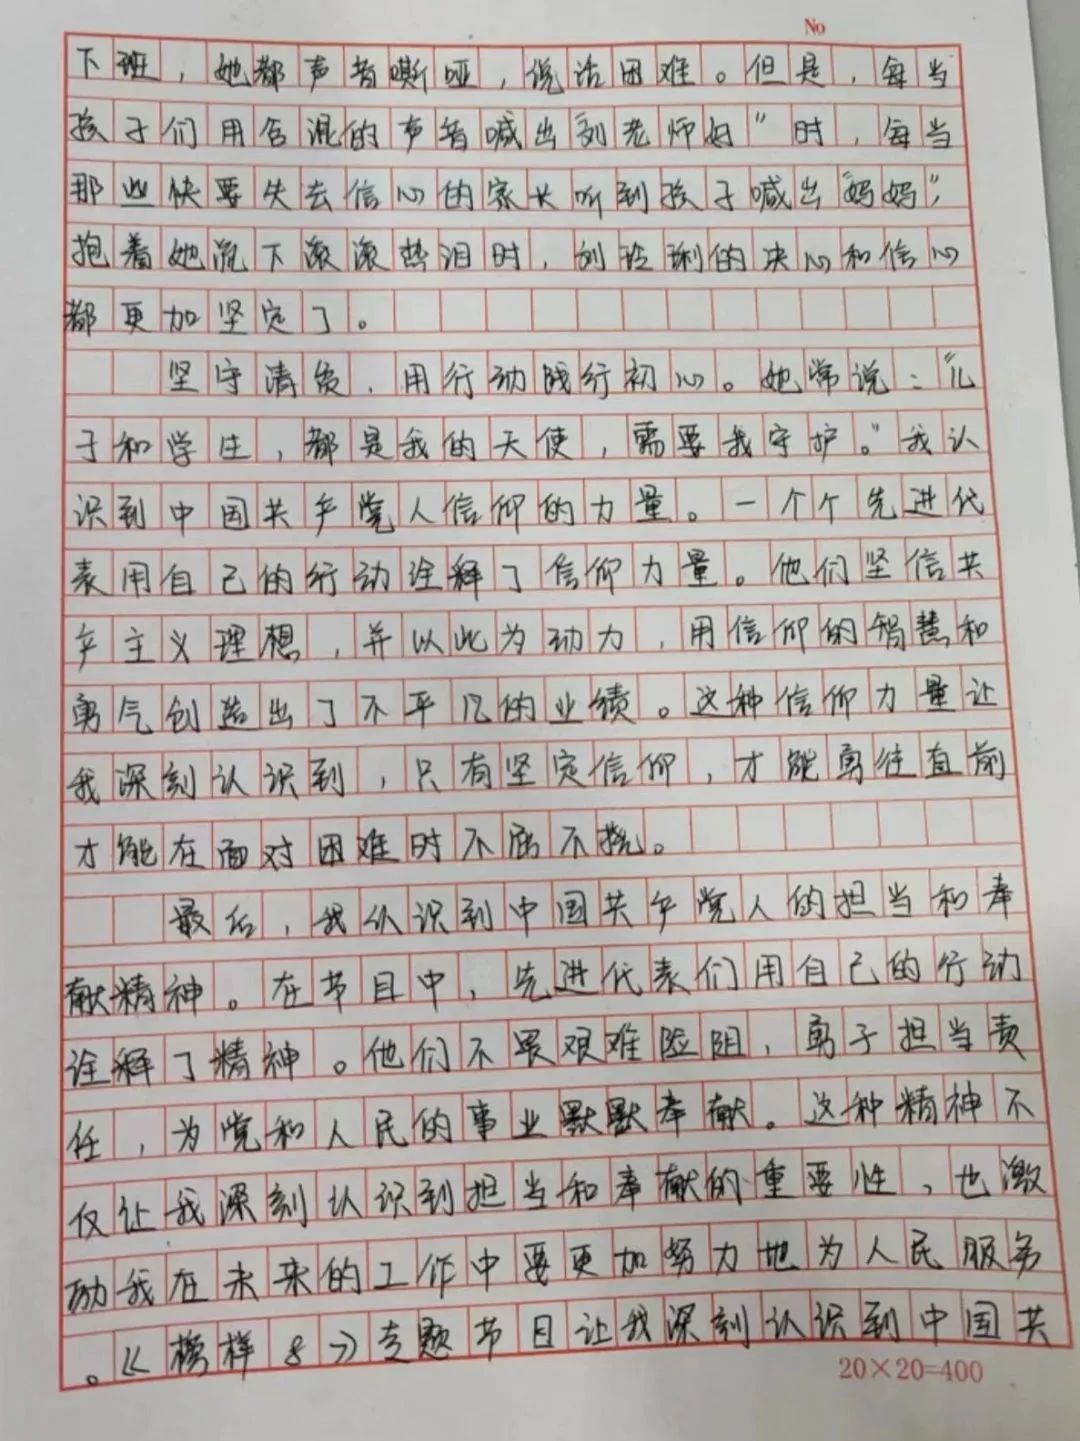 No
下班，她都声音嘶哑，说话困难。但是，每当
孩子们用含混的声音喊出刘老师好”时，每当
那些快要失去信心的家长听到孩子喊出“妈妈”，
抱着她流下滚滚热泪时，刘玲琍的决心和信心
都更加坚定了。
坚守清贫，用行动践行初心。她常说：“儿
子和学生，都是我的天使，需要我守护。”我认
识到中国共产党人信仰的力量。一个个先进代
表用自己的行动诠释了信仰力量。他们坚信共
产主义理想，并以此为动力，用信仰的智慧和
勇气创造出了不平凡的业绩。这种信仰力量让
我深刻认识到，只有坚定信仰，才能勇往直前
才能在面对困难时不屈不挠。
最后，我认识到中国共产党人的担当和奉
献精神。在节目中，先进代表们用自己的行动
诠释了精神。他们不畏艰难险阻，勇于担当责
任，为党和人民的事业默默奉献。这种精神不
仅让我深刻认识到担当和奉献的重要性，也激
励我在未来的工作中要更加努力地为人民服务
。《榜样8》专题节目让我深刻认识到中国共
20×20=400